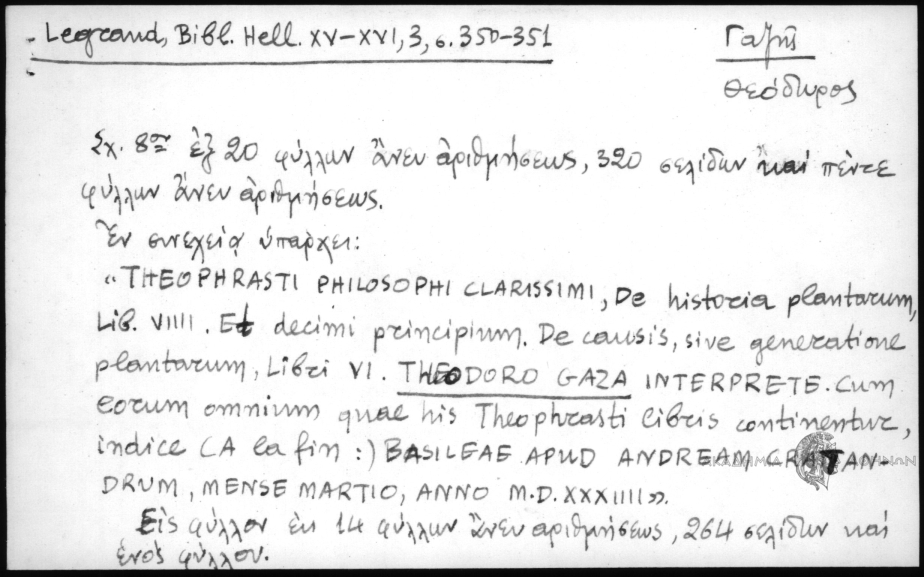 Legrand, Bibl. Hell. XV-XVI, 3, σ. 350-351
Γαζῆς
Θεόδωρος
Σχ. 8ον ἐξ 20 φύλλων ἄνευ ἀριθμήσεως, 320 σελίδων καί πέντε
φύλλων ἄνευ ἀριθμήσεως.
Ἐν συνεχείᾳ ὑπάρχει:
«THEOPHRASTI PHILOSOPHI CLARISSIMI, De historia plantarum,
Lib. VIIII. Et decimi principium. De causis, sive generatione
plantarum, Libri VI. THEODORO GAZA INTERPRETE. Cum
eorum omnium quae his Theophrasti libris continentur,
indice (A la fin:) BASILEAE APUD ANDREAM CRATAN-
DRUM, MENSE MARTIO, ANNO M.D.XXXIIII».
Εἰς φύλλον ἐκ 14 φύλλων ἄνευ ἀριθμήσεως, 264 σελίδων καί
ἑνός φύλλου.
ΑΚΑΔΗΜΙΑ ΑΘΗΝΩΝ